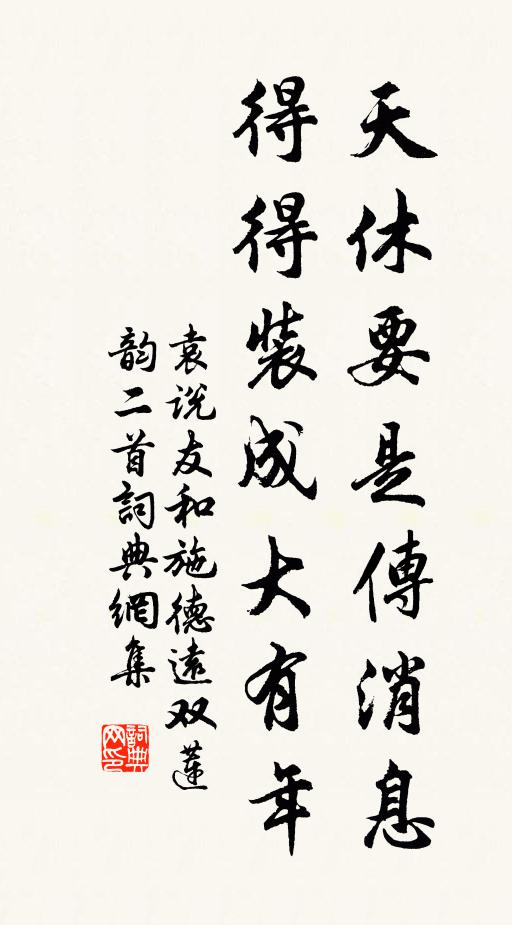 天休要是傳消息
得得裝成大有年
袁说友和施德遠双蓮
韵二首詞典網集
詞典
网印